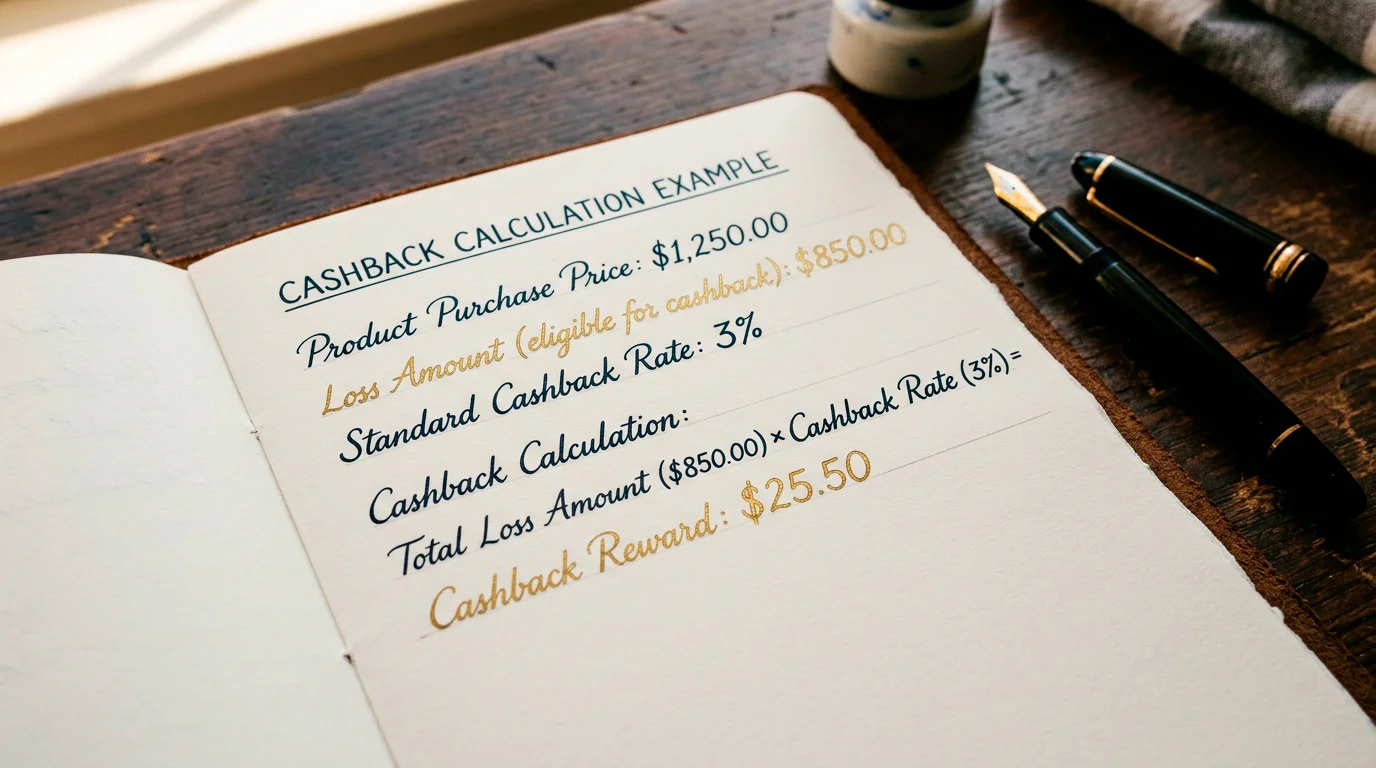 CASHBACK CALCULATION EXAMPLE
Product Purchase Price: $1,250.00
Loss Amount (eligible for cashback): $850.00
Standard Cashback Rate: 3%
Cashback Calculation:
Total Loss Amount ($850.00) × Cashback Rate (3%) =
Cashback Reward: $25.50